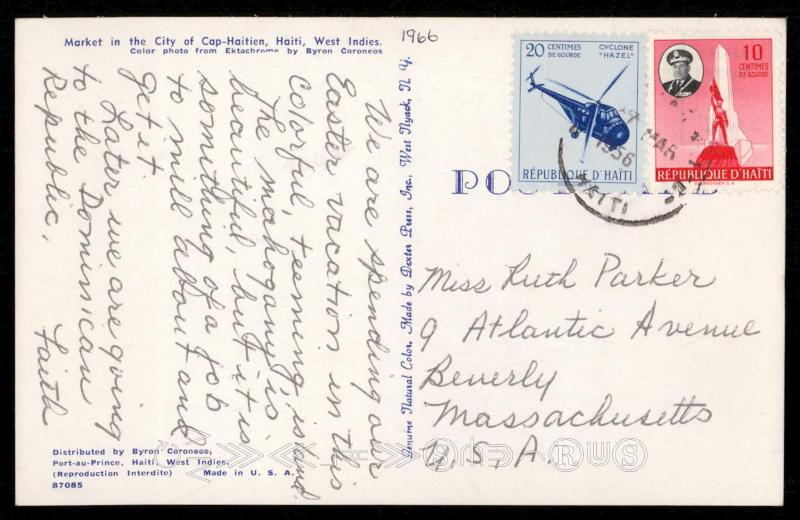 Market in the City of Cap-Haitien, Haiti, West Indies.
Color photo from Ektachrome by Byron Coroneos
1966
We are spending our
Easter vacation in this
colorful, teeming, island.
The mahogany is
beautiful, but it is
somithing of a job
to mill about and
get it.
Later we are going
to the Dominican
Republic,
Faith
Distributed by Byron Coroneos,
Port-au-Prince, Haiti, West Indies.
(Reproduction Interdite) Made in U. S. A.
87085
Genuine Natural Color. Made by Dexter Press, Inc., West Nyack, N. Y.
20 CENTIMES DE GOURDE
CYCLONE "HAZEL"
RÉPUBLIQUE D'HAÏTI
10 CENTIMES DE GOURDE
RÉPUBLIQUE D'HAÏTI
MAR
1956
HAITI
Miss Ruth Parker
9 Atlantic Avenue
Beverly
Massachusetts
U. S. A.